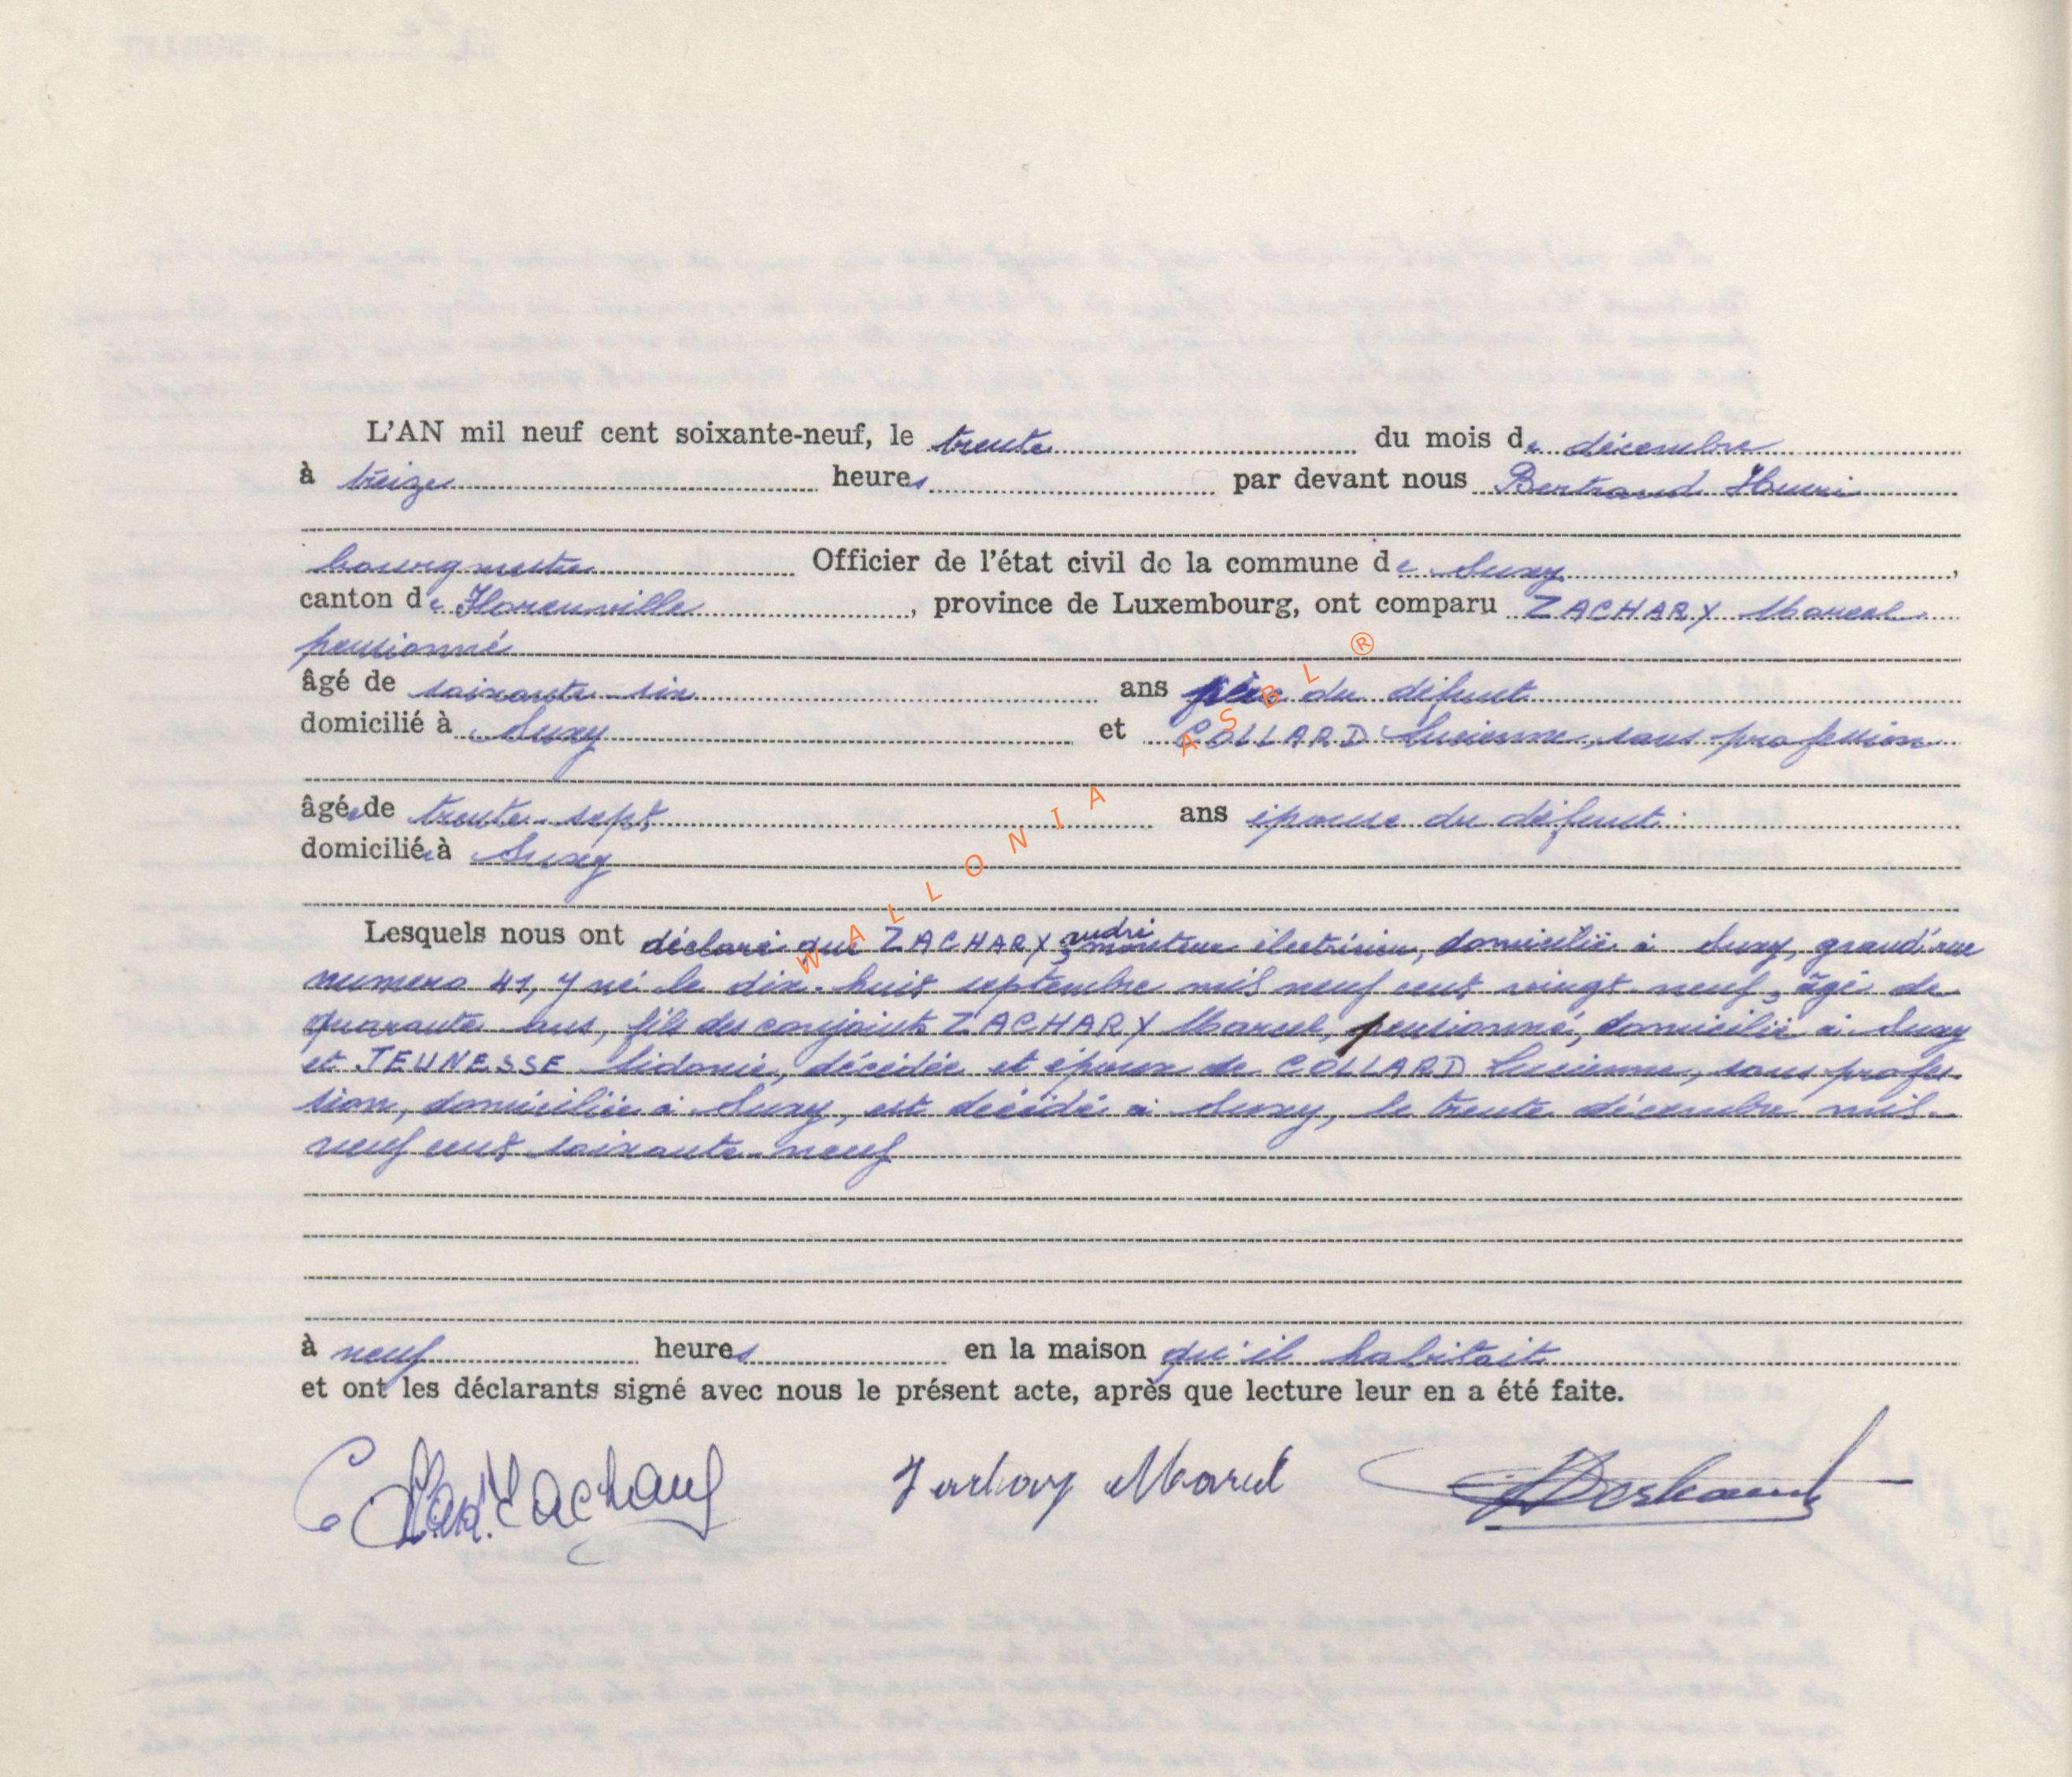 L'AN mil neuf cent soixante-neuf, le trente du mois de décembre
à treize heures par devant nous Bertrand Henri
bourgmestre Officier de l'état civil de la commune de Suxy,
canton de Florenville, province de Luxembourg, ont comparu ZACHARY Marcel
pensionné
âgé de soixante six ans père du défunt
domicilié à Suxy et COLLARD Lucienne, sans profession
âgée de trente-sept ans épouse du défunt
domiciliée à Suxy
andré
Lesquels nous ont déclaré que ZACHARY, monteur électricien, domicilié à Suxy, grand'rue
numero 41, y né le dix-huit septembre mil neuf cent vingt-neuf, âgé de
quarante ans, fils des conjoints ZACHARY Marcel, pensionné, domicilié à Suxy
et JEUNESSE Sidonie, décédée et époux de COLLARD Lucienne, sans profes-
sion, domiciliée à Suxy, est décédé à Suxy, le trente décembre mil-
neuf cent soixante-neuf
à neuf heures en la maison qu'il habitait
et ont les déclarants signé avec nous le présent acte, après que lecture leur en a été faite.
Zachary Marcel
WALLONIA ASBL ®